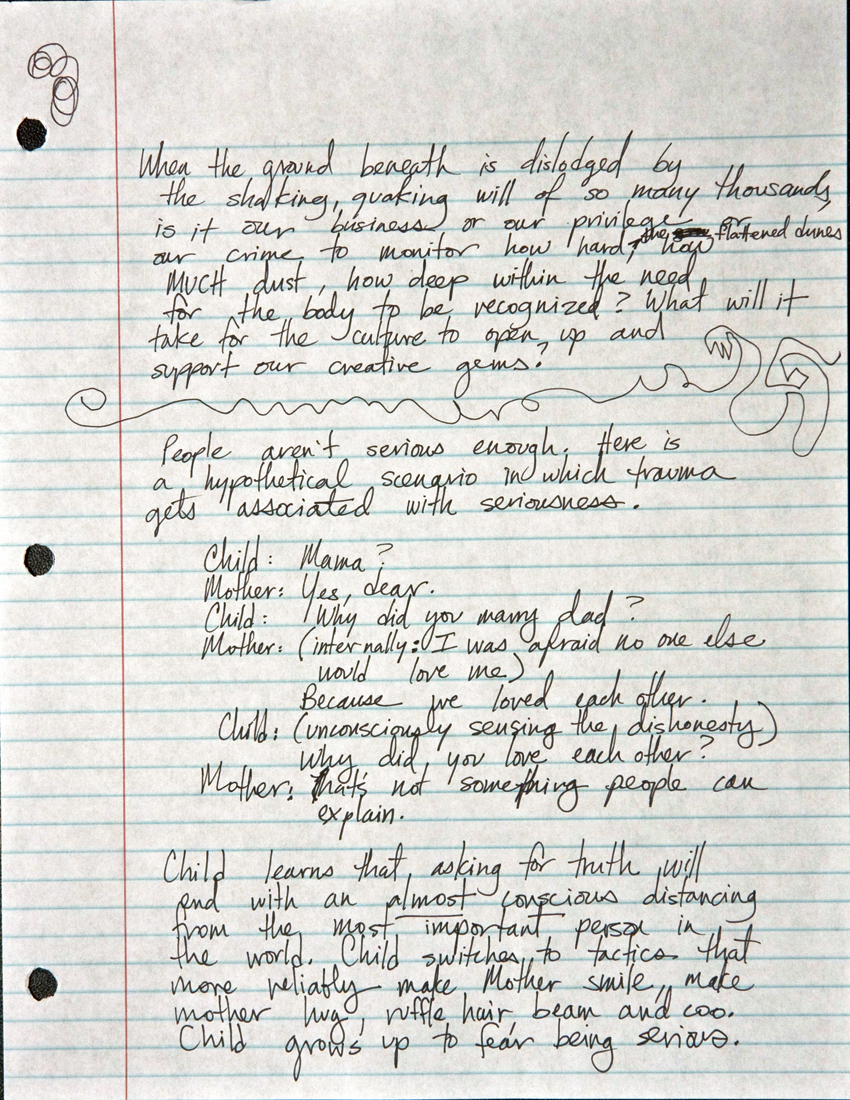 When the ground beneath is dislodged by
the shaking, quaking will of so many thousands,
is it our business or our privilege or
our crime to monitor how hard, the flattened dunes how
MUCH dust, how deep within the need
for the body to be recognized? What will it
take for the culture to open up and
support our creative gems?
People aren't serious enough. Here is
a hypothetical scenario in which trauma
gets associated with seriousness.
Child: Mama?
Mother: Yes, dear.
Child: Why did you marry dad?
Mother: (internally: I was afraid no one else
would love me)
Because we loved each other.
Child: (unconsciously sensing the dishonesty)
Why did you love each other?
Mother: That's not something people can
explain.
Child learns that asking for truth will
end with an almost conscious distancing
from the most important person in
the world. Child switches to tactics that
more reliably make Mother smile, make
mother hug, ruffle hair, beam and coo.
Child grows up to fear being serious.